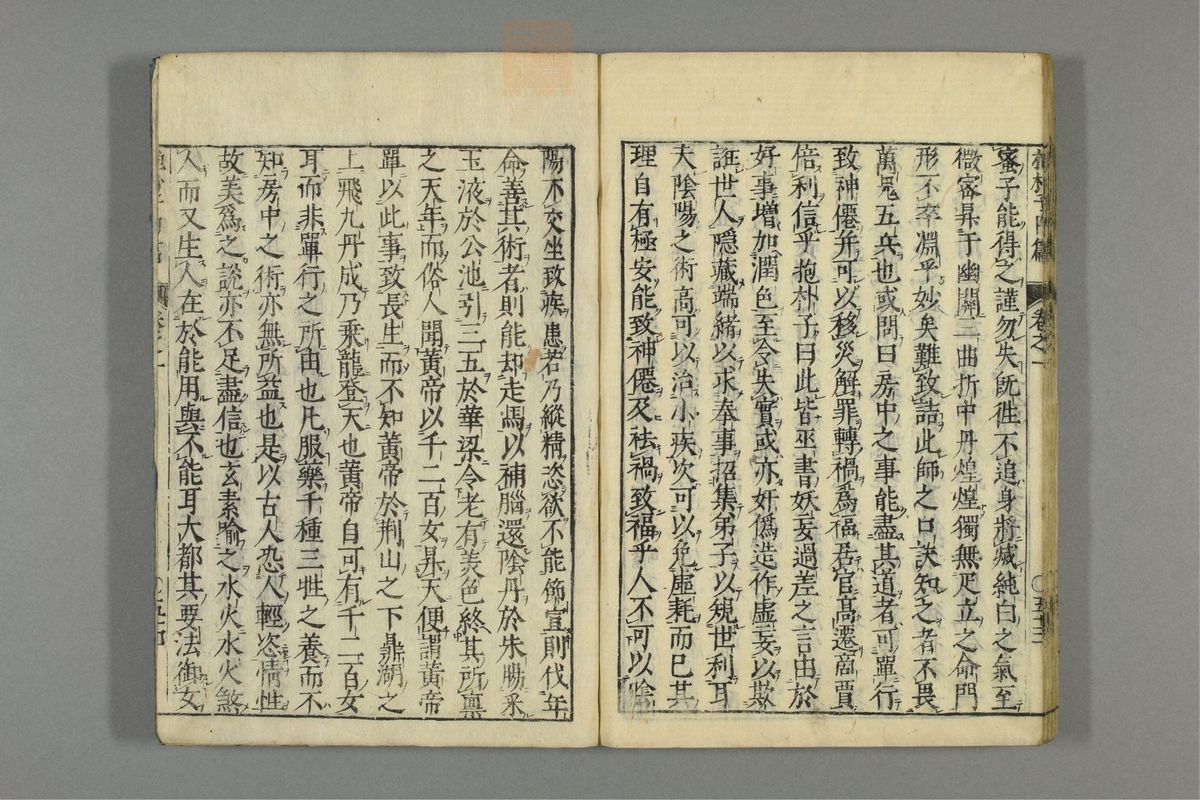 抱朴子内篇 卷之一 ○五十三
蜜子能得之謹勿失既徃不追身將滅純白之氣至
微密昇于幽關三曲折中丹煌煌獨無疋立之命門
形不卒淵乎妙矣難致詰此師之口訣知之者不畏
萬鬼五兵也或問曰房中之事能盡其道者可單行
致神僊并可以移災解罪轉禍爲福居官高遷商賈
倍利信乎抱朴子曰此皆巫書妖妄過差之言由於
好事增加潤色至令失實或亦奸僞造作虛妄以欺
誑世人隱藏端緒以求奉事招集弟子以規世利耳
夫陰陽之術高可以治小疾次可以免虛耗而已其
理自有極安能致神僊及袪禍致福乎人不可以陰
陽不交坐致疾患若乃縱精恣欲不能節宣則伐年
命善其術者則能却走馬以補腦還陰丹於朱膓采
玉液於公池引三五於華梁令老有美色終其所禀
之天年而俗人聞黄帝以千二百女昇天便謂黄帝
單以此事致長生而不知黄帝於荆山之下鼎湖之
上飛九丹成乃乘龍登天也黄帝自可有千二百女
耳而非單行之所由也凡服藥千種三牲之養而不
知房中之術亦無所益也是以古人恐人輕恣情性
故美爲之說亦不足盡信也玄素喻之水火水火煞
人而又生人在於能用與不能耳大都其要法御女